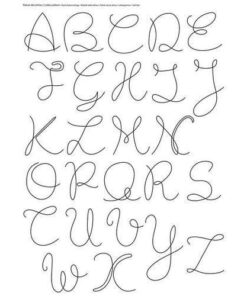 A B C D E
F G H I J
K L M N
O P Q R S
T U V
W X Y Z